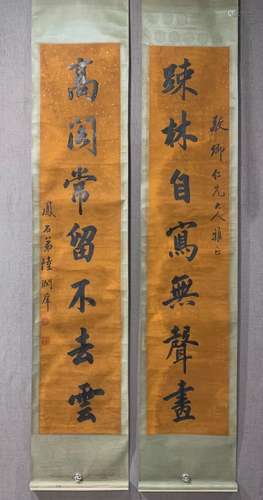 敬卿仁兄大人雅正
疎林自寫無聲畫
高閣常留不去雲
鳳石弟陸潤庠